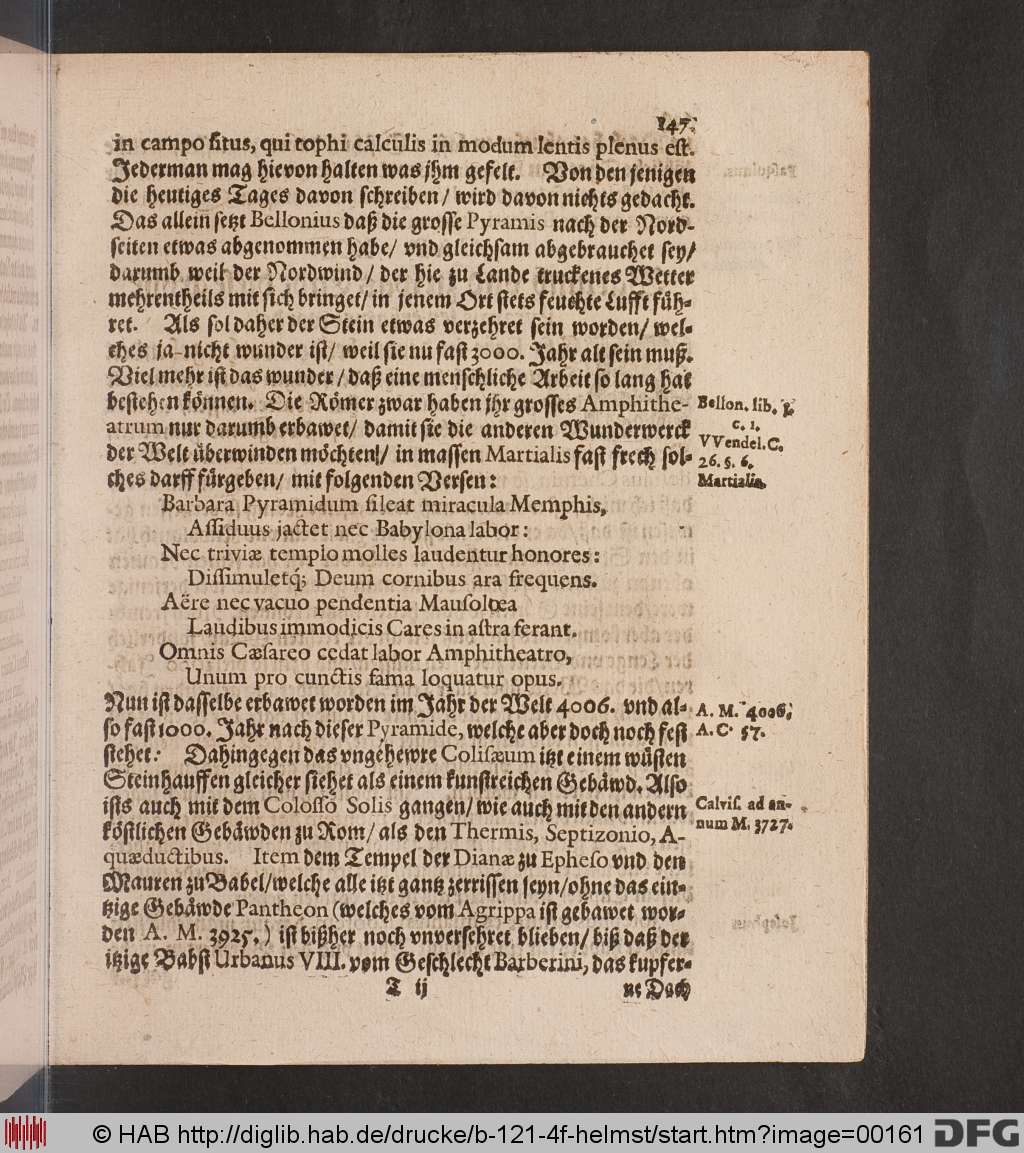 147.
in campo situs, qui tophi calculis in modum lentis plenus est.
Jederman mag hievon halten was jhm gefelt. Von den jenigen
die heutiges Tages davon schreiben/ wird davon nichts gedacht.
Das allein setzt Bellonius daß die grosse Pyramis nach der Nord-
seiten etwas abgenommen habe/ vnd gleichsam abgebrauchet sey/
darumb weil der Nordwind/ der hie zu Lande truckenes Wetter
mehrentheils mit sich bringet/ in jenem Ort stets feuchte Lufft füh-
ret. Als sol daher der Stein etwas verzehret sein worden/ wel-
ches ja nicht wunder ist/ weil sie nu fast 3000. Jahr alt sein muß.
Viel mehr ist das wunder/ daß eine menschliche Arbeit so lang hat
bestehen können. Die Römer zwar haben jhr grosses Amphithe-
atrum nur darumb erbawet/ damit sie die anderen Wunderwerck
der Welt überwinden möchten/ in massen Martialis fast frech sol-
ches darff fürgeben/ mit folgenden Versen:
Bellon. lib. 2.
c. 1.
VVendel. C.
26. s. 6.
Martialis.
Barbara Pyramidum sileat miracula Memphis,
Assiduus jactet nec Babylona labor:
Nec triviæ templo molles laudentur honores:
Dissimuletq́; Deum cornibus ara frequens.
Aëre nec vacuo pendentia Mausolœa
Laudibus immodicis Cares in astra ferant.
Omnis Cæsareo cedat labor Amphitheatro,
Unum pro cunctis fama loquatur opus.
Nun ist dasselbe erbawet worden im Jahr der Welt 4006. vnd al-
so fast 1000. Jahr nach dieser Pyramide, welche aber doch noch fest
stehet: Dahingegen das vngehewre Colisæum itzt einem wüsten
Steinhauffen gleicher siehet als einem kunstreichen Gebäwd. Also
ists auch mit dem Colosso Solis gangen/ wie auch mit den andern
köstlichen Gebäwden zu Rom/ als den Thermis, Septizonio, A-
quæductibus. Item dem Tempel der Dianæ zu Epheso vnd den
Mauren zu Babel/ welche alle itzt gantz zerrissen seyn/ ohne das ein-
tzige Gebäwde Pantheon (welches vom Agrippa ist gebawet wor-
den A. M. 3925.) ist bißher noch vnversehret blieben/ biß daß der
itzige Babst Urbanus VIII. vom Geschlecht Barberini, das kupfer-
A. M. 4006.
A. C. 57.
Calvis. ad an-
num M. 3727.
T ij
ne Dach
© HAB http://diglib.hab.de/drucke/b-121-4f-helmst/start.htm?image=00161
DFG